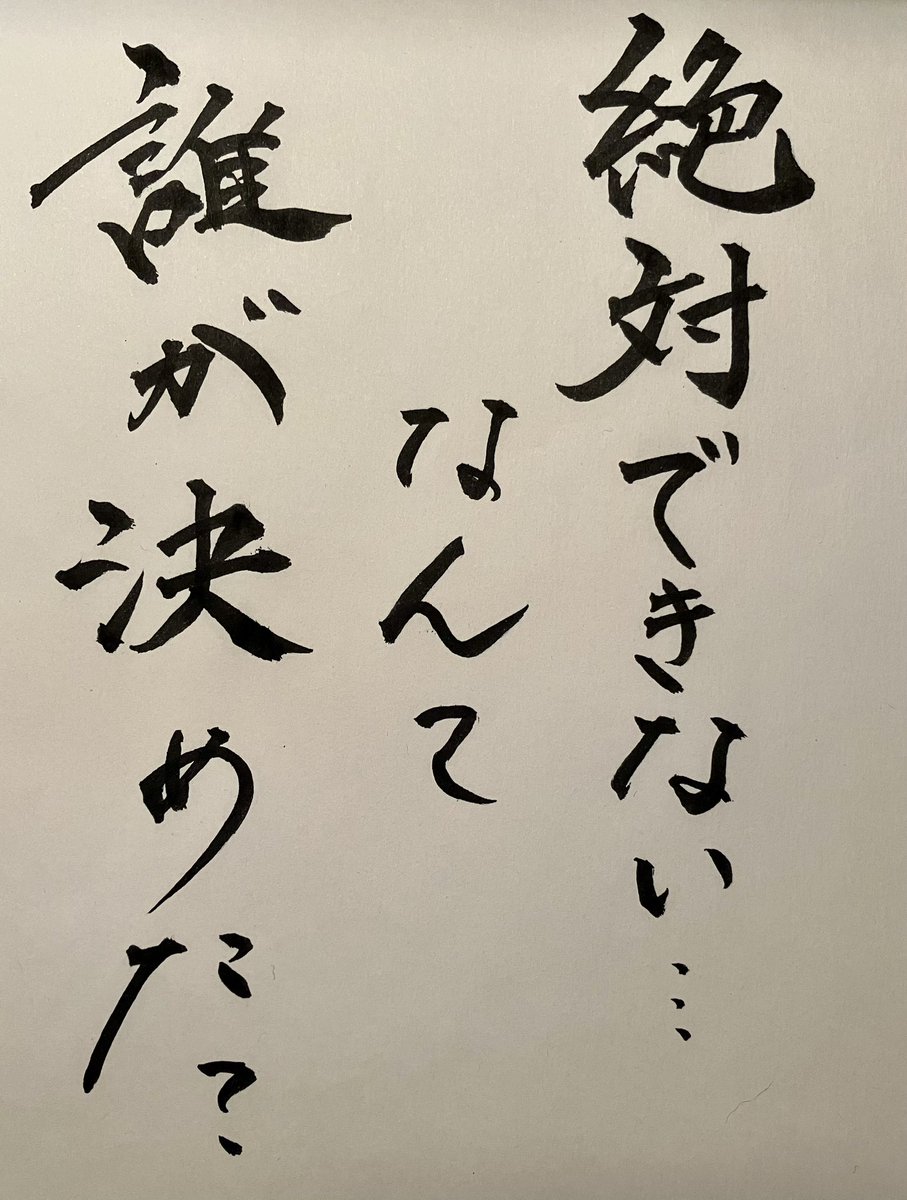 絶対できない…
なんて
誰が決めた？